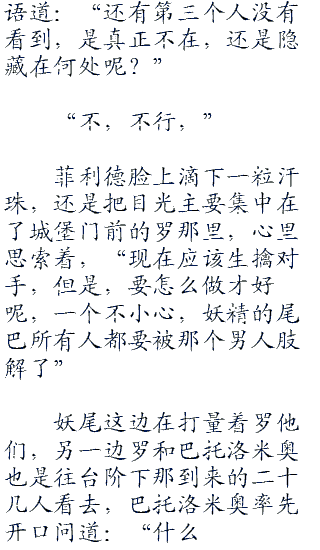 语道：“还有第三个人没有
看到，是真正不在，还是隐
藏在何处呢？”
“不，不行，”
菲利德脸上滴下一粒汗
珠，还是把目光主要集中在
了城堡门前的罗那里，心里
思索着，“现在应该生擒对
手，但是，要怎么做才好
呢，一个不小心，妖精的尾
巴所有人都要被那个男人肢
解了”
妖尾这边在打量着罗他
们，另一边罗和巴托洛米奥
也是往台阶下那到来的二十
几人看去，巴托洛米奥率先
开口问道：“什么